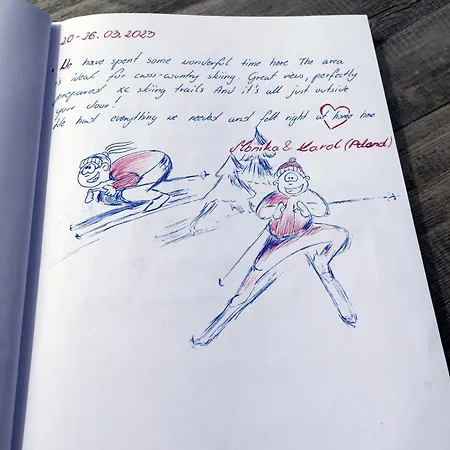 20-26.03.2023
We have spent some wonderful time here The area
is ideal for cross-country skiing. Great views, perfectly
prepared xc skiing trails And it's all just outside
your door!
We had everything we needed and felt right at home here
Monika & Karol (Poland)